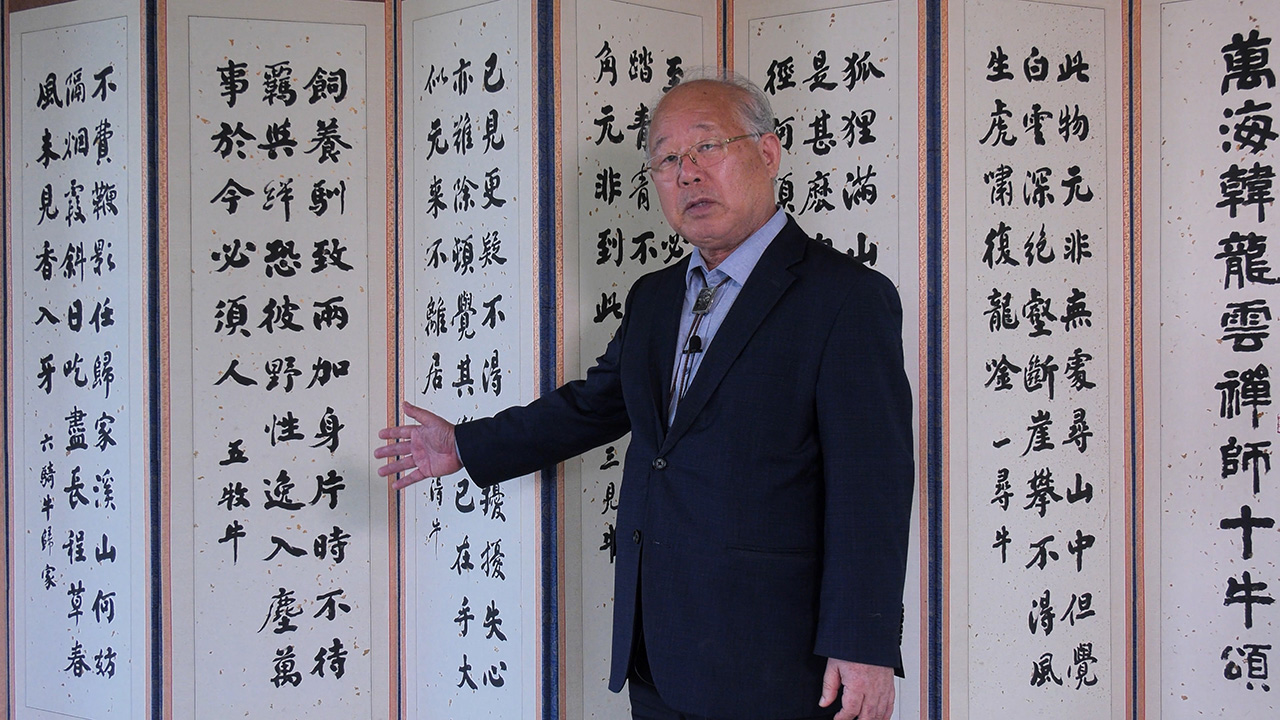 萬海韓龍雲禪師十牛頌
此物元非無處尋山中但覺
白雲深絕壑斷崖攀不得風
生虎嘯復龍唫 一尋牛
狐狸滿山
是甚麽
徑何須
至
踏青青不必
角元非到此 三見牛
已見更疑不得擾擾失心
亦難除頓覺其 已在手大
似元來不離居 得牛
飼養馴致兩加身片時不待
羈與絆恐彼野性逸入塵萬
事於今必須人 五牧牛
不費鞭影任歸家溪山何妨
隔烟霞斜日吃盡長程草春
風未見香入牙 六騎牛歸家